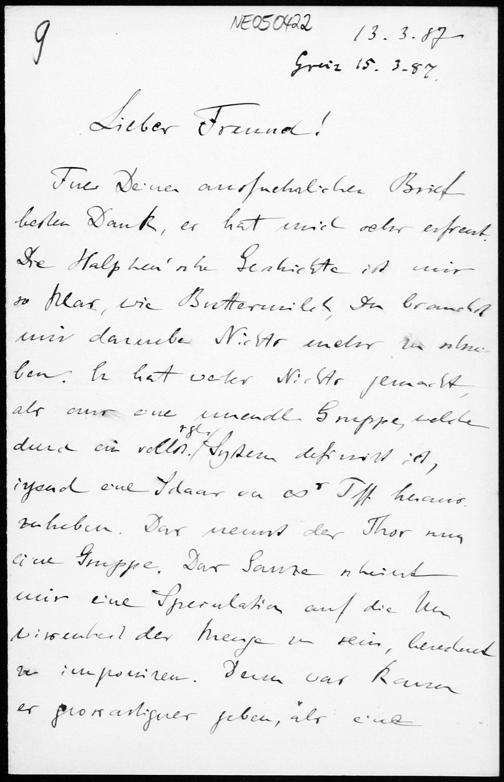 9
NE050422
13. 3. 87
Greiz 15. 3. 87.
Lieber Freund!
Fuer Deinen ausfuehrlichen Brief
besten Dank, er hat mich sehr erfreut.
Die Halphen'sche Geschichte ist mir
so klar, wie Buttermilch, Du brauchst
mir darueber Nichts mehr zu schrei
ben. Er hat weter Nichts gemacht,
als aus eine unendl. Gruppe, welche
durch ein vollst. System definirt ist,
irgend eine Schaar von ∞ʳ Tff heraus
zuheben. Das nennt der Thor nun
eine Gruppe. Das Ganze scheint
mir eine Speculation auf die Un
wissenheit der Menge zu sein, berechnet
zu imponiren. Denn was kann
es grossartigeres geben, als eine